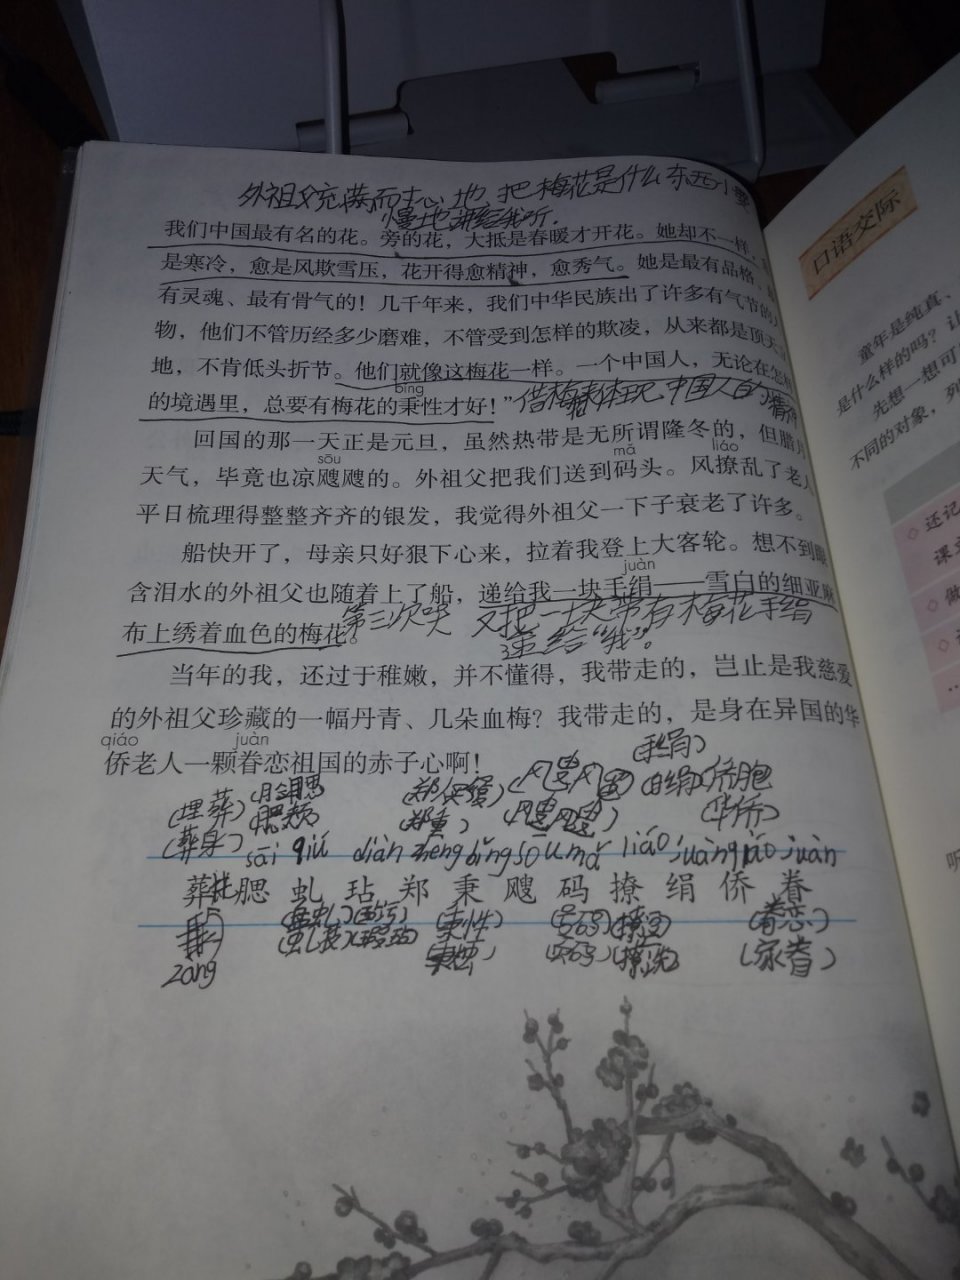 外祖父充满而耐心地 把梅花是什么东西
慢地讲给我听.
我们中国最有名的花。旁的花，大抵是春暖才开花。她却不一样，
是寒冷，愈是风欺雪压，花开得愈精神，愈秀气。她是最有品格、
有灵魂、最有骨气的！几千年来，我们中华民族出了许多有气节的人
物，他们不管历经多少磨难，不管受到怎样的欺凌，从来都是顶天立
地，不肯低头折节。他们就像这梅花一样。一个中国人，无论在怎样
bǐng
的境遇里，总要有梅花的秉性才好！”
借梅 体现 中国人的精神
回国的那一天正是元旦，虽然热带是无所谓隆冬的，但腊月
sōu mǎ liáo
天气，毕竟也凉飕飕的。外祖父把我们送到码头。风撩乱了老人
平日梳理得整整齐齐的银发，我觉得外祖父一下子衰老了许多。
船快开了，母亲只好狠下心来，拉着我登上大客轮。想不到眼
juàn
含泪水的外祖父也随着上了船，递给我一块手绢——雪白的细亚麻
布上绣着血色的梅花。
第三次哭 又把一块带有梅花手绢
递给“我”。
当年的我，还过于稚嫩，并不懂得，我带走的，岂止是我慈爱
的外祖父珍藏的一幅丹青、几朵血梅？我带走的，是身在异国的华
qiáo juàn
侨老人一颗眷恋祖国的赤子心啊！
(手绢)
(埋葬) (郑 (白绢) 侨胞
(葬身) (郑重) (华侨)
sāi qiú diàn zhèng bǐng sōu mǎ liáo juàn qiáo juàn
葬 腮 虬 玷 郑 秉 飕 码 撩 绢 侨 眷
(玷污) (秉性) (号码) (眷恋)
(秉烛) (家眷)
zàng
口语交际
童年是纯真、
是什么样的吗？让
先想一想可
不同的对象，列
◇ 还记
课
◇ 做